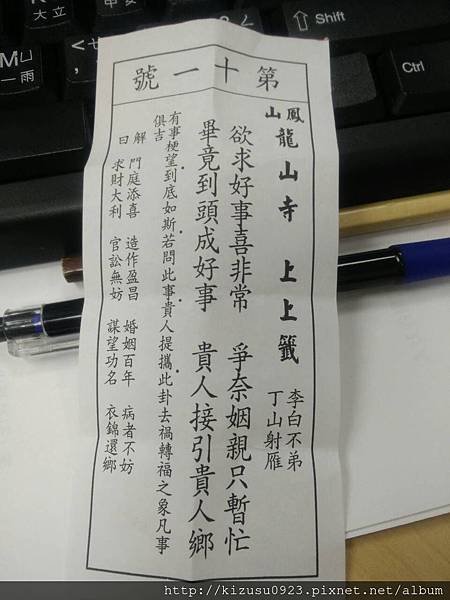 大立
M
一雨
Shift
Ctrl
第十一號
鳳山龍山寺 上上籤
李白不弟
丁山射雁
欲求好事喜非常 爭奈姻親只暫忙
畢竟到頭成好事 貴人接引貴人鄉
有事梗望到底如斯。若問此事貴人提攜。此卦去禍轉福之象凡事
俱吉
解曰
門庭添喜 造作盈昌 婚姻百年 病者不妨
求財大利 官訟無妨 謀望功名 衣錦還鄉
http://kizusu0923.pixnet.net/album